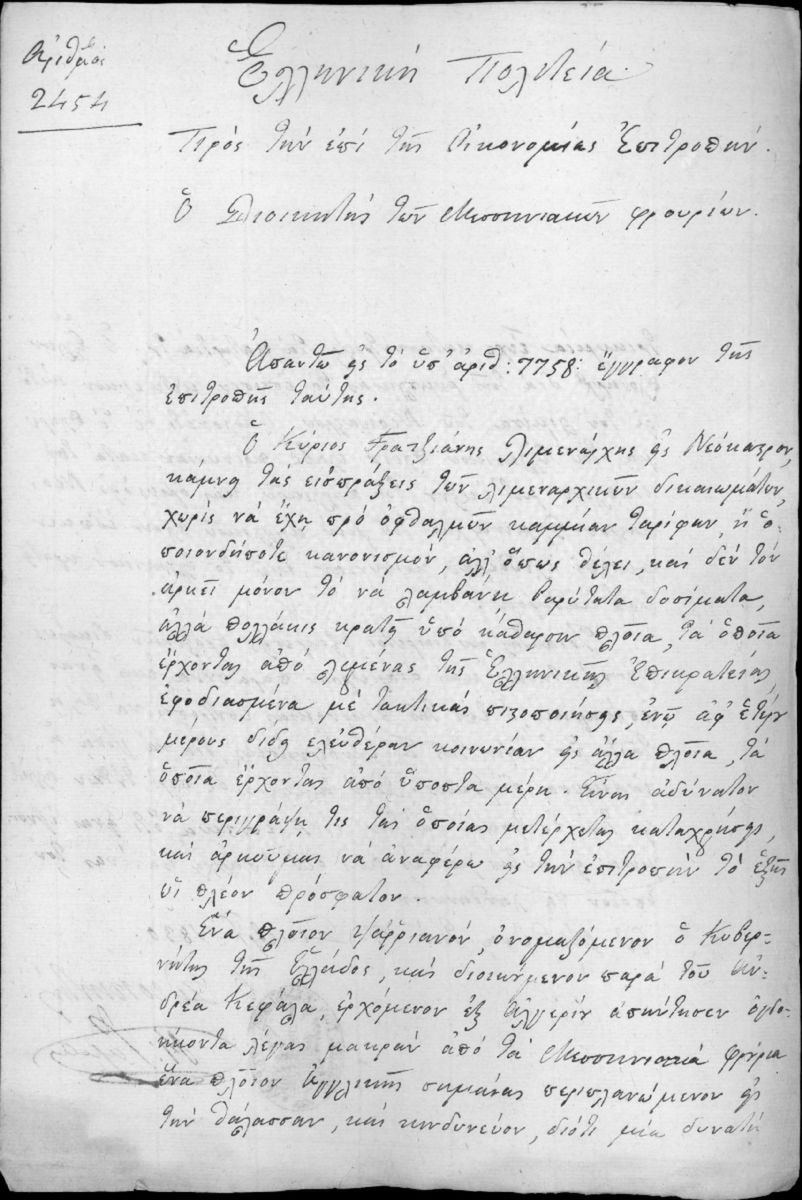 Ἀριθμὸς
2454
Ἑλληνικὴ Πολιτεία.
Πρὸς τὴν ἐπὶ τῆς Οἰκονομίας Ἐπιτροπήν.
Ὁ Διοικητὴς τῶν Μεσσηνιακῶν φρουρίων.
Ἀπαντῶ εἰς τὸ ὑπ' ἀριθ: 7758: ἔγγραφον τῆς
ἐπιτροπῆς ταύτης.
Ὁ Κύριος Γρατζιάνης λιμενάρχης εἰς Νεόκαστρον,
κάμνει τὰς εἰσπράξεις τῶν λιμεναρχικῶν δικαιωμάτων,
χωρὶς νὰ ἔχη πρὸ ὀφθαλμῶν καμμίαν ταρίφαν, ἢ ὁ-
ποιονδήποτε κανονισμόν, ἀλλ' ὅπως θέλει, καὶ δὲν τὸν
ἀρκεῖ μόνον τὸ νὰ λαμβάνη βαρύτατα δοσίματα,
ἀλλὰ πολλάκις κρατεῖ ὑπὸ κάθαρσιν πλοῖα, τὰ ὁποῖα
ἔρχονται ἀπὸ λιμένας τῆς Ἑλληνικῆς Ἐπικρατείας,
ἐφοδιασμένα μὲ τακτικὰς πιζοποιήσεις, ἐνῷ ἀφ' ἑτέρου
μέρους δίδει ἐλευθέραν κοινωνίαν εἰς ἄλλα πλοῖα, τὰ
ὁποῖα ἔρχονται ἀπὸ ὕποπτα μέρη. Εἶναι ἀδύνατον
νὰ περιγράψη τις τὰς ὁποίας μετέρχεται καταχρήσεις,
καὶ ἀρκοῦμαι νὰ ἀναφέρω εἰς τὴν ἐπιτροπὴν τὸ ἑξῆς
ὡς πλέον πρόσφατον.
Ἕνα πλοῖον ψαρριανόν, ὀνομαζόμενον ὁ Κυβερ-
νήτης τῆς Ἑλλάδος, καὶ διοικούμενον παρὰ τοῦ Ἀν-
δρέα Κεφάλα, ἐρχόμενον ἐξ Ἀλγερίν ἀπήντησεν ὀγδο-
ήκοντα λέγας μακρὰν ἀπὸ τὰ Μεσσηνιακὰ φρούρια
ἕνα πλοῖον Ἀγγλικῆς σημαίας περιπλανώμενον εἰς
τὴν θάλασσαν, καὶ κινδυνεῦον, διότι μία δυνατὴ